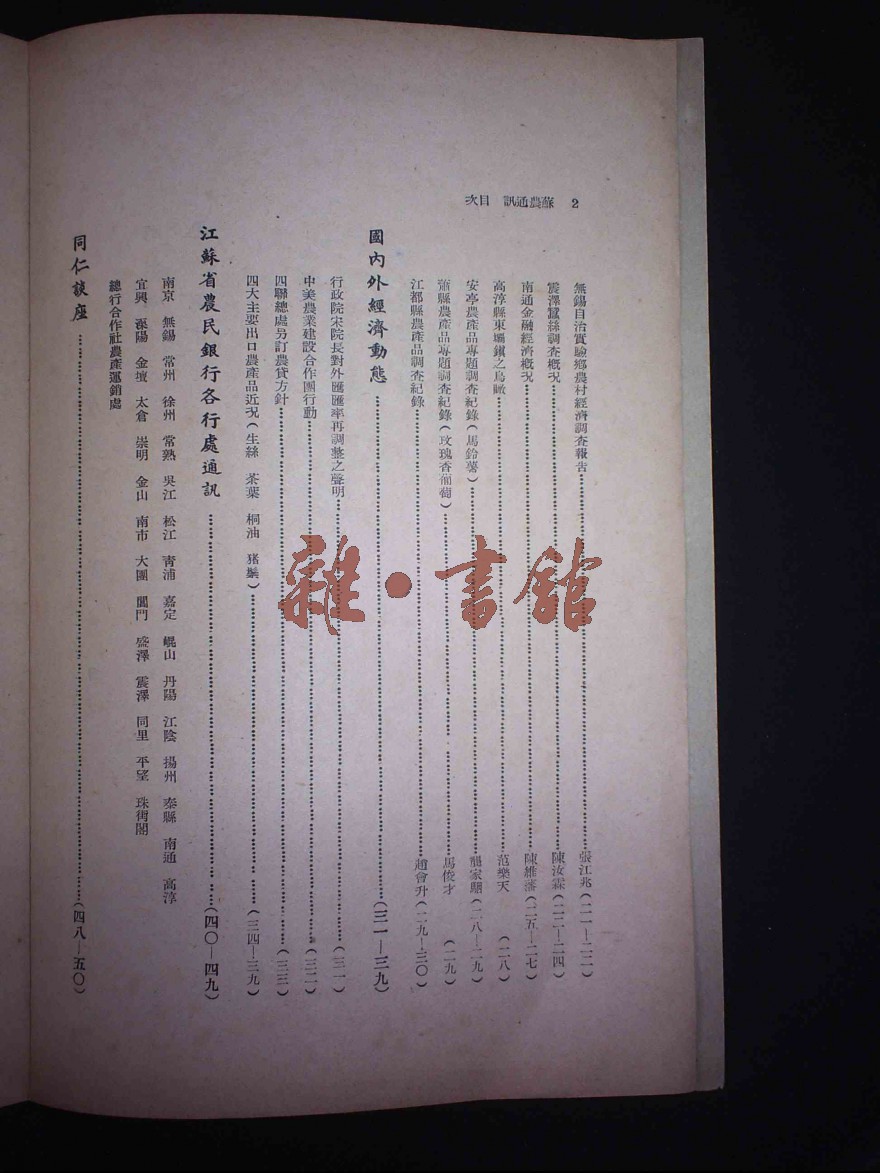 2　蘇農通訊　目次
無錫自治實驗鄉農村經濟調查報告……張江兆（二一—二二）
震澤蠶絲調查概况……陳汝霖（二二—二四）
南通金融經濟概况……陳維藩（二五—二七）
高淳縣東壩鎮之鳥瞰……范樂天（二八）
安亭農產品專題調查紀錄（馬鈴薯）……龔家騮（二八—二九）
蕭縣農產品專題調查紀錄（玫瑰香葡萄）……馬俊才（二九）
江都縣農產品調查紀錄……趙會升（二九—三〇）
國內外經濟動態……（三一—三九）
行政院宋院長對外匯匯率再調整之聲明……（三一）
中美農業建設合作團行動……（三二）
四聯總處另訂農貸方針……（三三）
四大主要出口農產品近况（生絲　茶葉　桐油　豬鬃）……（三四—三九）
江蘇省農民銀行各行處通訊……（四〇—四九）
南京　無錫　常州　徐州　常熟　吳江　松江　青浦　嘉定　崐山　丹陽　江陰　揚州　泰縣　南通　高淳
宜興　溧陽　金壇　太倉　崇明　金山　南市　大團　閶門　盛澤　震澤　同里　平望　珠街閣
總行合作社農產運銷處
同仁談座……（四八—五〇）
雜·書館